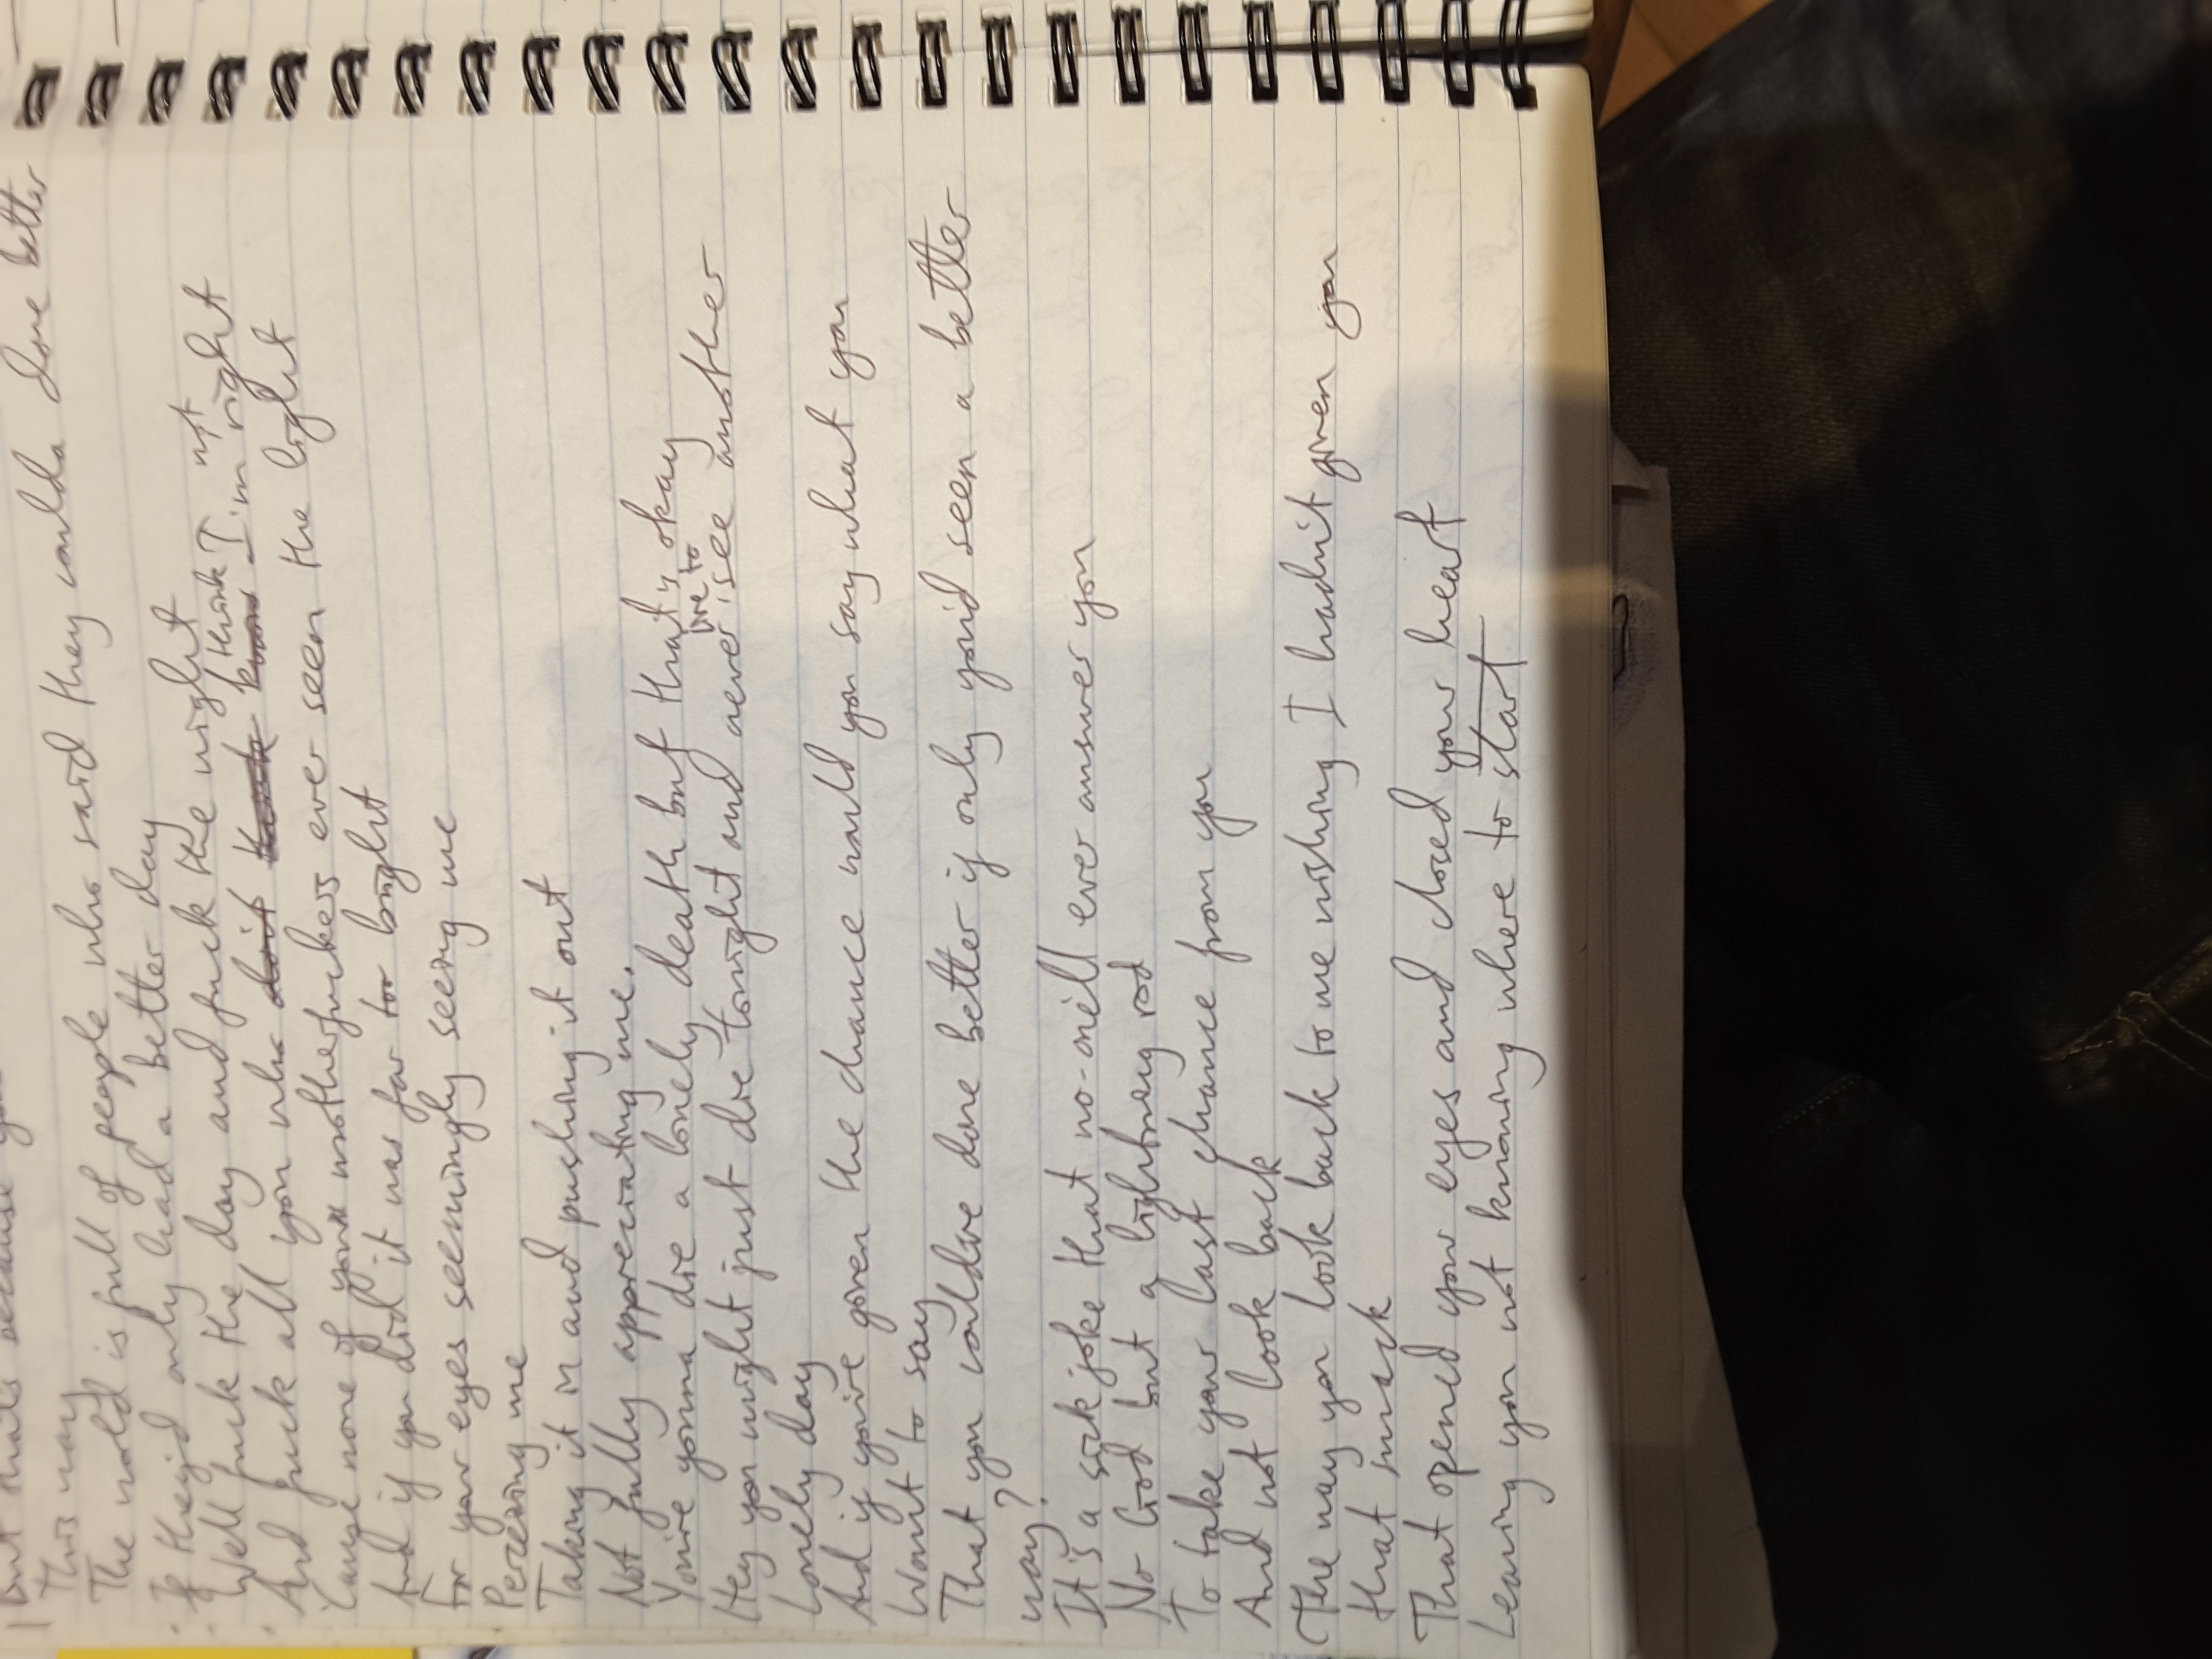 But that's because you
This way
The wold is full of people who said they coulda done better
If they'd only had a better day
Well fuck the day and fuck the night
And fuck all you who don't think know think I'm not right
'Cause none of you motherfuckers ever seen the light
And if you did it was far too bright
For your eyes seemingly seeing me
Perceiving me
Taking it in and pushing it out
Not fully appreciating me.
You're gonna die a lonely death but that's okay
Hey you might just die tonight and never live to see another
Lonely day
And if you're given the chance would you say what you
Want to say
That you could've done better if only you'd seen a better
way?
It's a sick joke that no-one'll ever answer you
No God but a lightning rod
To take your last chance from you
And not look back
The way you look back to me wishing I hadn't given you
that smack
That opened your eyes and closed your heart
Leaving you not knowing where to start